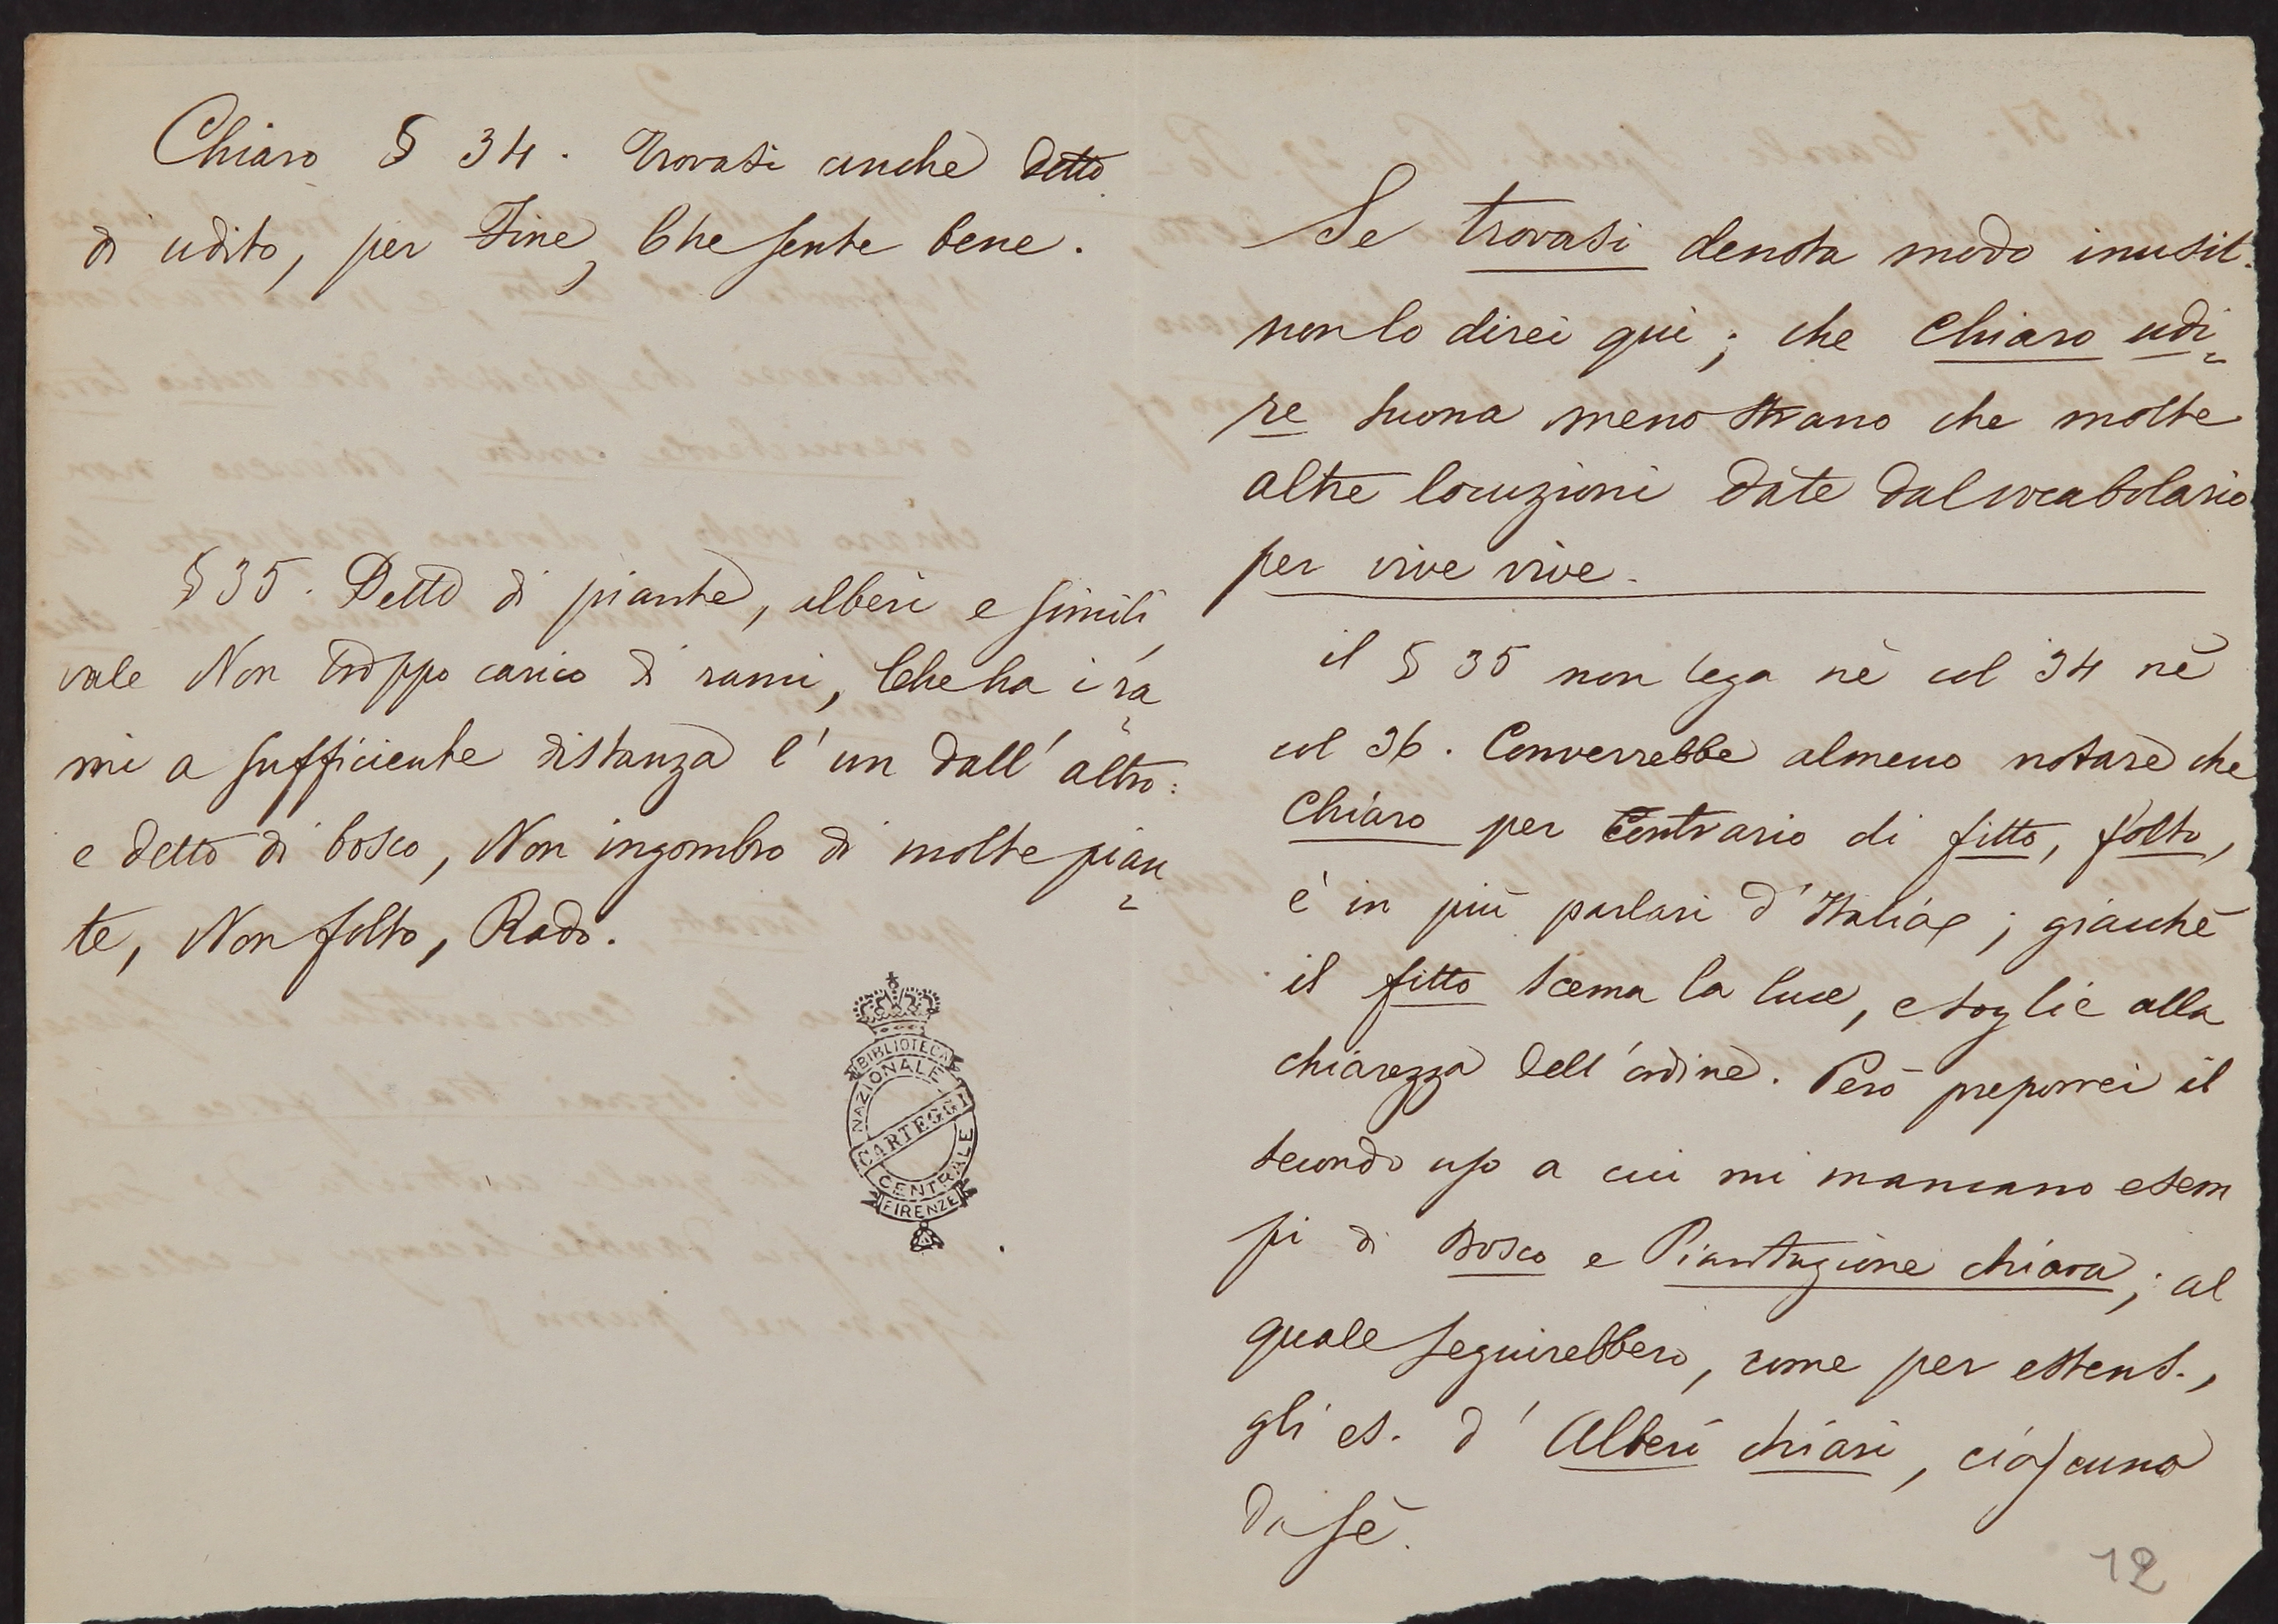 Chiaro § 34. Trovasi anche detto
di udito, per Fine, Che sente bene.
§ 35. Detto di piante, alberi e simili,
vale Non troppo carico di rami, Che ha i ra=
mi a sufficiente distanza l'un dall'altro:
e detto di bosco, Non ingombro di molte pian=
te, Non folto, Rado.
BIBLIOTECA
NAZIONALE
CARTEGGI
CENTRALE
FIRENZE
Se trovasi denota modo inusit.
non lo direi qui; che chiaro udi=
re suona meno strano che molte
altre locuzioni date dal vocabolario
per vive vive.
il § 35 non lega nè col 34 nè
col 36. Converrebbe almeno notare che
Chiaro per Contrario di fitto, folto,
è in più parlari d'Italia; giacchè
il fitto scema la luce, e toglie alla
chiarezza dell'ordine. Però preporrei il
secondo uso a cui mi mancano esem
pi di Bosco e Piantagione chiara; al
quale seguirebbero, come per estens.,
gli es. d'Alberi chiari, ciascuno
da sè.
12